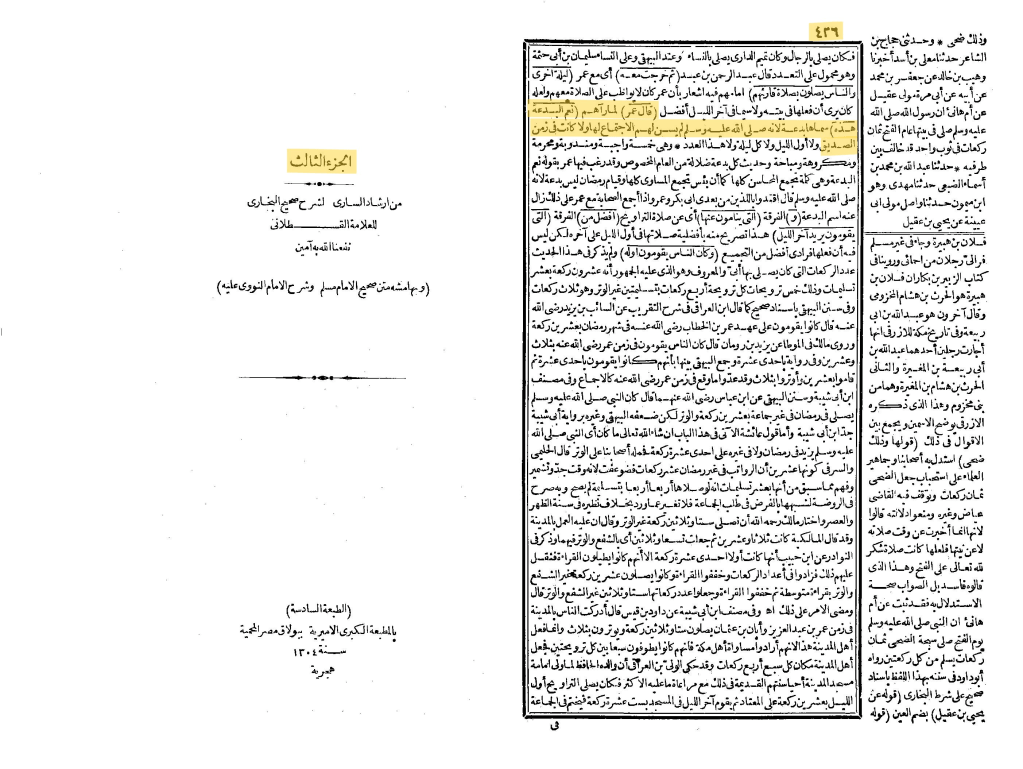 الجزء الثالث
من ارشاد السارى لشرح صحيح البخارى
للعلامة القسطلانى
نفعنا الله به آمين
(وبهامشه متن صحيح الامام مسلم وشرح الامام النووى عليه)
(الطبعة السادسة)
بالمطبعة الكبرى الاميرية ببولاق مصر المحمية
سنة ١٣٠٤
هجرية
٤٢٦
فكان يصلى بالرجال وكان تميم الدارى يصلى بالنساء وعند البيهقى وعلى النساء سليمان بن أبى حثمة
وهو محمول على التعدد قال عبد الرحمن بن عبد (ثم خرجت معه) أى مع عمر (ليلة اخرى
والناس يصلون بصلاة قارئهم) امامهم فيه اشعار بأن عمر كان لا يواظب على الصلاة معهم ولعله
كان يرى أن فعلها فى بيته ولا سيما فى آخر الليل أفضل (قال عمر) لما رآهم (نعم البدعة
هذه) سماها بدعة لانه صلى الله عليه وسلم لم يسن لهم الاجتماع لها ولا كانت فى زمن
الصديق ولا أول الليل ولا كل ليلة ولا هذا العدد * وهى خمسة واجبة ومندوبة ومحرمة
ومكروهة ومباحة وحديث كل بدعة ضلالة من العام المخصوص وقد رغب فيها عمر بقوله نعم
البدعة وهى كلمة تجمع المحاسن كلها كما أن بئس تجمع المساوى كلها وقيام رمضان ليس بدعة لانه
صلى الله عليه وسلم قال اقتدوا باللذين من بعدى ابى بكر وعمر واذا أجمع الصحابة مع عمر على ذلك زال
عنه اسم البدعة (و) الفرقة (التى ينامون عنها) أى عن صلاة التراويح (افضل من) الفرقة (التى
يقومون يريد آخر الليل) هذا تصريح منه بأفضلية صلاتها فى أول الليل على آخره لكن ليس
فيه أن فعلها فرادى أفضل من التجميع (وكان الناس يقومون اوله) ولم يذكر فى هذا الحديث
عدد الركعات التى كان يصلى بها أبى والمعروف وهو الذى عليه الجمهور أنه عشرون ركعة بعشر
تسليمات وذلك خمس ترويحات كل ترويحة أربع ركعات بتسليمتين غير الوتر وهو ثلاث ركعات
وفى سنن البيهقى باسناد صحيح كما قال ابن العراقى فى شرح التقريب عن السائب بن يزيد رضى الله
عنه قال كانوا يقومون على عهد عمر بن الخطاب رضى الله عنه فى شهر رمضان بعشرين ركعة
وروى مالك فى الموطا عن يزيد بن رومان قال كان الناس يقومون فى زمن عمر رضى الله عنه بثلاث
وعشرين وفى رواية باحدى عشرة وجمع البيهقى بينهما بأنهم كانوا يقومون باحدى عشرة ثم
قاموا بعشرين وأوتروا بثلاث وقد عدوا ما وقع فى زمن عمر رضى الله عنه كالاجماع وفى مصنف
ابن أبى شيبة وسنن البيهقى عن ابن عباس رضى الله عنهما قال كان النبى صلى الله عليه وسلم
يصلى فى رمضان فى غير جماعة بعشرين ركعة والوتر لكن ضعفه البيهقى وغيره برواية أبى شيبة
جد ابن أبى شيبة وأما قول عائشة الآتى فى هذا الباب ان شاء الله تعالى ما كان أى النبى صلى الله
عليه وسلم يزيد فى رمضان ولا فى غيره على احدى عشرة ركعة فحمله أصحابنا على الوتر قال الحليمى
والسر فى كونها عشرين أن الرواتب فى غير رمضان عشر ركعات فضوعفت لانه وقت جد وتشمير
وفهم مما سبق من أنها بعشر تسليمات انه لو صلاها أربعا أربعا بتسليمة لم يصح وبه صرح
فى الروضة لشبهها بالفرض فى طلب الجماعة فلا تغير عما ورد بخلاف نظيره فى سنة الظهر
والعصر واختار مالك رحمه الله أن تصلى ستا وثلاثين ركعة غير الوتر وقال ان عليه العمل بالمدينة
وقد قال المالكية كانت ثلاثا وعشرين ثم جعلت تسعا وثلاثين أى بالشفع والوتر فيهما وذكر فى
النوادر عن ابن حبيب أنها كانت أولا احدى عشرة ركعة الا أنهم كانوا يطيلون القراءة فثقل
عليهم ذلك فزادوا فى أعداد الركعات وخففوا القراءة وكانوا يصلون عشرين ركعة غير الشفع
والوتر بقراءة متوسطة ثم خففوا القراءة وجعلوا عدد ركعاتها ستا وثلاثين غير الشفع والوتر قال
ومضى الامر على ذلك اه وفى مصنف ابن أبى شيبة عن داود بن قيس قال أدركت الناس بالمدينة
فى زمن عمر بن عبد العزيز وأبان بن عثمان يصلون ستا وثلاثين ركعة ويوترون بثلاث وانما فعل
أهل المدينة هذا لانهم أرادوا مساواة أهل مكة فانهم كانوا يطوفون سبعا بين كل ترويحتين فجعل
أهل المدينة مكان كل سبع أربع ركعات وقد حكى الولى بن العراقى أن والده الحافظ لما ولى امامة
مسجد المدينة أحيا سنتهم القديمة فى ذلك مع مراعاة ما عليه الاكثر فكان يصلى التراويح أول
الليل بعشرين ركعة على المعتاد ثم يقوم آخر الليل فى المسجد بست عشرة ركعة فيختم فى الجماعة
فى
وذلك ضحى * وحدثنى حجاج بن
الشاعر حدثنا معلى بن أسد أخبرنا
وهيب بن خالد عن جعفر بن محمد
عن أبيه عن أبى مرة مولى عقيل
عن أم هانئ أن رسول الله صلى الله
عليه وسلم صلى فى بيتها عام الفتح ثمان
ركعات فى ثوب واحد قد خالف بين
طرفيه * حدثنا عبد الله بن محمد بن
أسماء الضبعى حدثنا مهدى وهو
ابن ميمون حدثنا واصل مولى ابى
عيينة عن يحيى بن عقيل
فلان بن هبيرة وجاء فى غير مسلم
فر الى رجلان من احمائى وروينا فى
كتاب الزبير بن بكار ان فلان بن
هبيرة هو الحرث بن هشام المخزومى
وقال آخرون هو عبد الله بن ابى
ربيعة وفى تاريخ مكة للازرقى انها
أجارت رجلين أحدهما عبد الله بن
أبى ربيعة بن المغيرة والثانى
الحرث بن هشام بن المغيرة وهما من
بنى مخزوم وهذا الذى ذكره
الازرقى يوضح الاسمين ويجمع بين
الاقوال فى ذلك (قولها وذلك
ضحى) استدل به أصحابنا وجماهير
العلماء على استحباب جعل الضحى
ثمان ركعات وتوقف فيه القاضى
عياض وغيره ومنعوا دلالته قالوا
لانها انما أخبرت عن وقت صلاته
لا عن نيتها فلعلها كانت صلاة شكر
لله تعالى على الفتح وهذا الذى
قالوه فاسد بل الصواب صحة
الاستدلال به فقد ثبت عن أم
هانئ ان النبى صلى الله عليه وسلم
يوم الفتح صلى سبحة الضحى ثمان
ركعات يسلم من كل ركعتين رواه
أبو داود فى سننه بهذا اللفظ باسناد
صحيح على شرط البخارى (قوله عن
يحيى بن عقيل) بضم العين (قوله